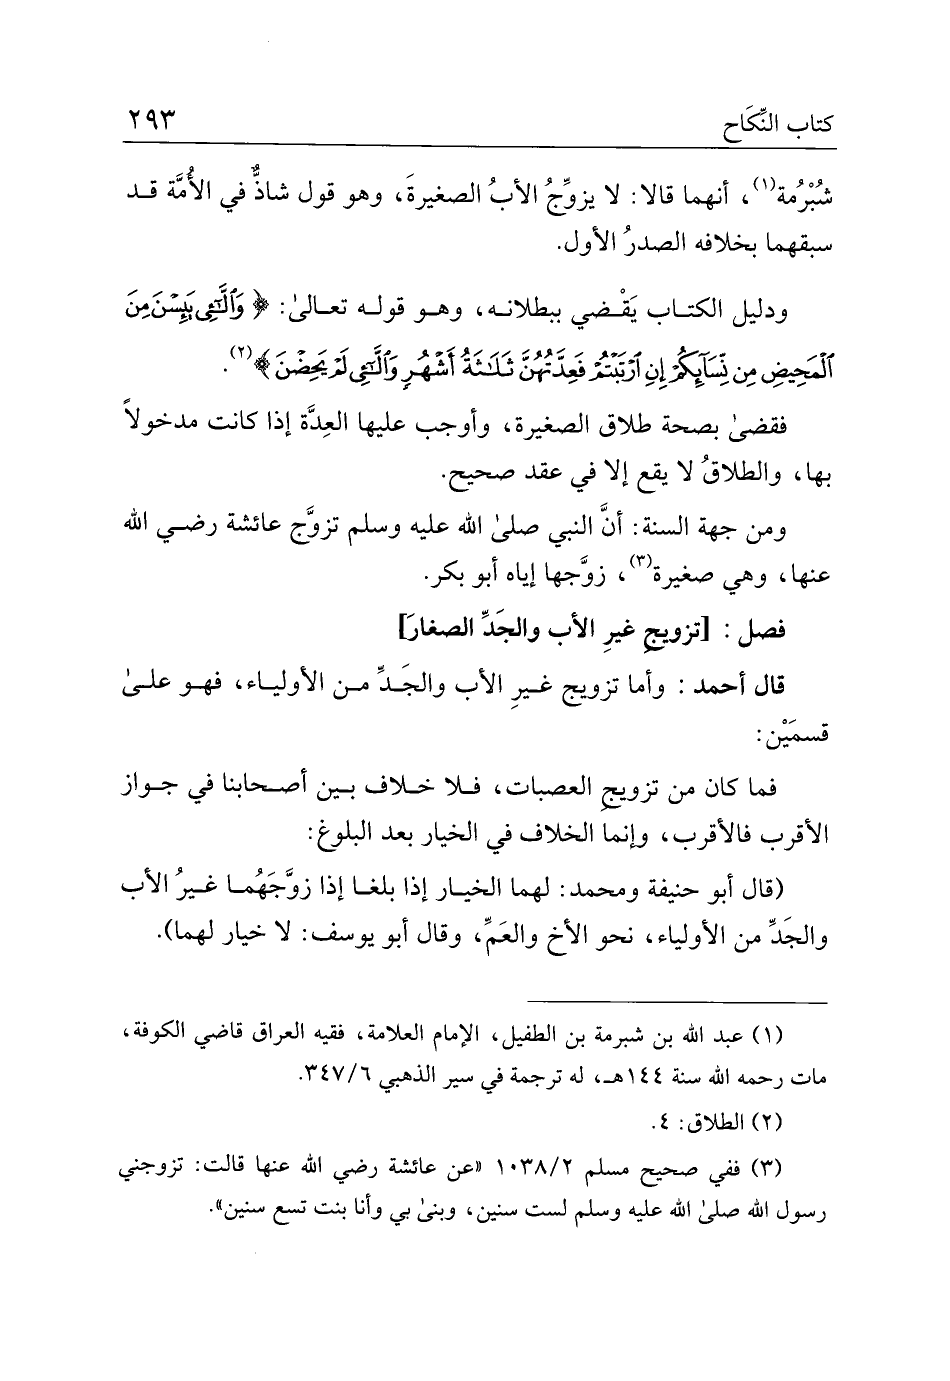 كتاب النِّكَاح ٢٩٣
شُبْرُمة(١)، أنهما قالا: لا يزوِّجُ الأبُ الصغيرةَ، وهو قول شاذٌّ في الأُمَّة قد
سبقهما بخلافه الصدرُ الأول.
ودليل الكتاب يَقْضي ببطلانه، وهو قوله تعالىٰ: ﴿ وَٱلَّٰٓـِٔى يَئِسْنَ مِنَ
ٱلْمَحِيضِ مِن نِّسَآئِكُمْ إِنِ ٱرْتَبْتُمْ فَعِدَّتُهُنَّ ثَلَٰثَةُ أَشْهُرٍ وَٱلَّٰٓـِٔى لَمْ يَحِضْنَ ﴾(٢).
فقضىٰ بصحة طلاق الصغيرة، وأوجب عليها العِدَّة إذا كانت مدخولاً
بها، والطلاقُ لا يقع إلا في عقد صحيح.
ومن جهة السنة: أنَّ النبي صلىٰ الله عليه وسلم تزوَّج عائشة رضي الله
عنها، وهي صغيرة(٣)، زوَّجها إياه أبو بكر.
فصل : [تزويجِ غيرِ الأب والجَدِّ الصغارَ]
قال أحمد : وأما تزويج غيرِ الأب والجَدِّ من الأولياء، فهو علىٰ
قسمَيْن:
فما كان من تزويجِ العصبات، فلا خلاف بين أصحابنا في جواز
الأقرب فالأقرب، وإنما الخلاف في الخيار بعد البلوغ:
(قال أبو حنيفة ومحمد: لهما الخيار إذا بلغا إذا زوَّجَهُما غيرُ الأب
والجَدِّ من الأولياء، نحو الأخ والعَمِّ، وقال أبو يوسف: لا خيار لهما).
(١) عبد الله بن شبرمة بن الطفيل، الإمام العلامة، فقيه العراق قاضي الكوفة،
مات رحمه الله سنة ١٤٤هـ، له ترجمة في سير الذهبي ٣٤٧/٦.
(٢) الطلاق: ٤.
(٣) ففي صحيح مسلم ١٠٣٨/٢ «عن عائشة رضي الله عنها قالت: تزوجني
رسول الله صلىٰ الله عليه وسلم لست سنين، وبنىٰ بي وأنا بنت تسع سنين».